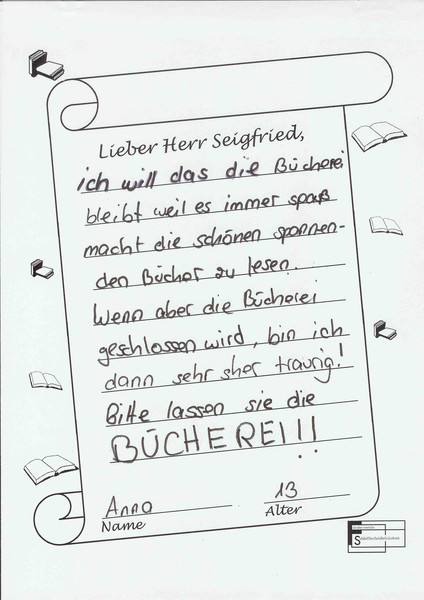 Lieber Herr Seigfried,
ich will das die Bücherei
bleibt weil es immer spaß
macht die schönen spannen-
den Bücher zu lesen.
Wenn aber die Bücherei
geschlossen wird, bin ich
dann sehr sher traurig!
Bitte lassen sie die
BÜCHEREI!!!
Anna 13
Name Alter